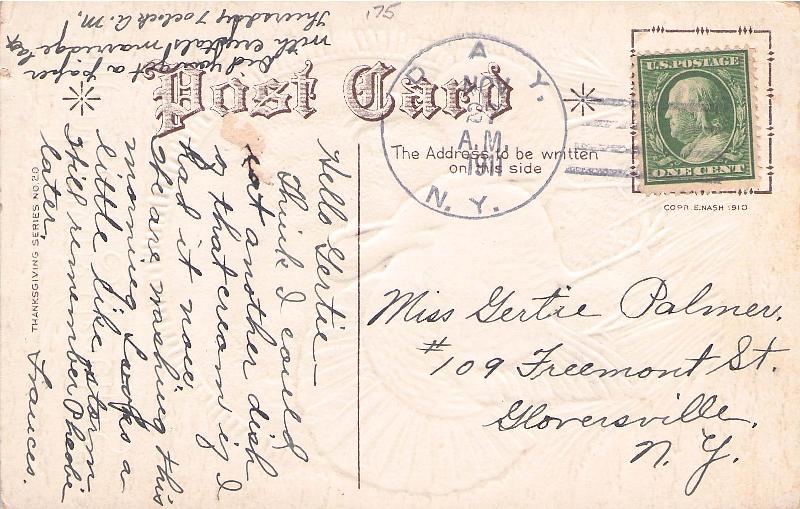 175
Post Card
The Address to be written
on this side
DAY,
NOV
2
A.M.
1911
N.Y.
U.S. POSTAGE
ONE CENT
COPR. E. NASH 1910
THANKSGIVING SERIES NO. 20
Hello Gertie—
Think I could
eat another dish
of that cream if I
had it now.
We are washing this
morning Looks a
little like storm
Still remember Phoebe
later,
Frances.
Did you get a paper
with crystals marriage
Thursday 7 oclock A.M,
Miss Gertie Palmer,
#109 Freemont St.
Gloversville,
N. Y.